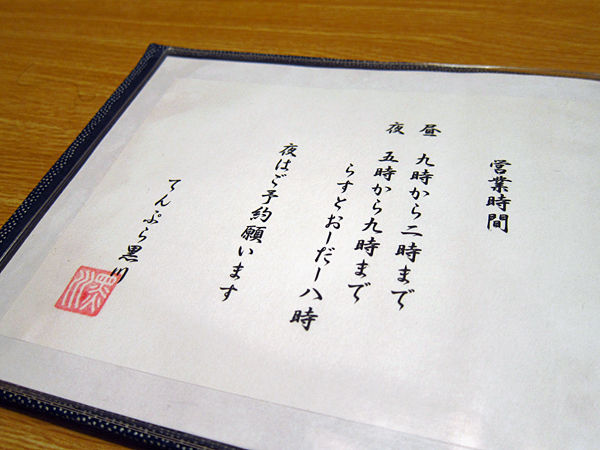 営業時間
昼 九時から二時まで
夜 五時から九時まで
らすとおーだー八時
夜はご予約願います
てんぷら黒川